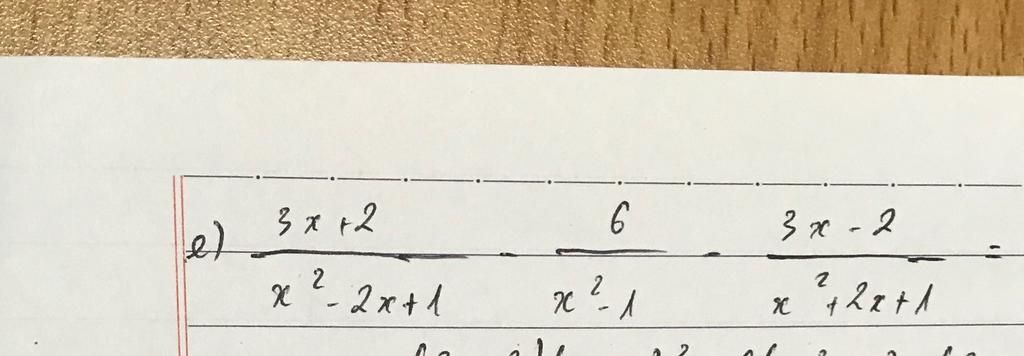 e) (3x+2)/(x²-2x+1) - 6/(x²-1) - (3x-2)/(x²+2x+1) =